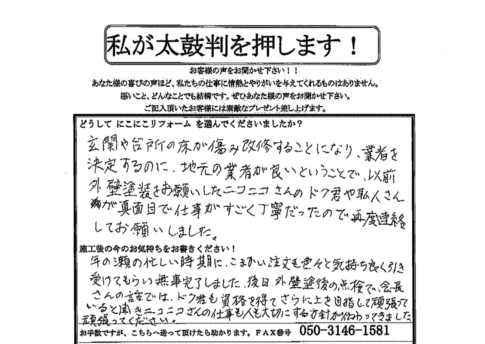 私が太鼓判を押します！
お客様の声をお聞かせ下さい！！
あなた様の喜びの声ほど、私たちの仕事に情熱とやりがいを与えてくれるものはありません。
悪いこと、どんなことでも結構です。ぜひあなた様の声をお聞かせ下さい。
ご記入頂いたお客様には素敵なプレゼント差し上げます。
どうして にこにこリフォーム を選んでくださいましたか？
玄関や台所の床が傷み改修することになり、業者を
決定するのに、地元の業者が良いということで、以前
外壁塗装をお願いしたニコニコさんのドク君や私人さん
が真面目で仕事がすごく丁寧だったので再度連絡
してお願いしました。
施工後の今のお気持ちをお書きください！
年の瀬の忙しい時期に、こまかい注文も色々と気持ち良く引き
受けてもらい無事完了しました。後日外壁塗装の点検で、会長
さんの話では、ドク君も資格を得てさらに上を目指して頑張って
いると聞きニコニコさんの仕事も人も大切にする方針が伝わってきました
頑張ってください。
お手数ですが、こちらへ送って頂けたら助かります。ＦＡＸ番号 050-3146-1581